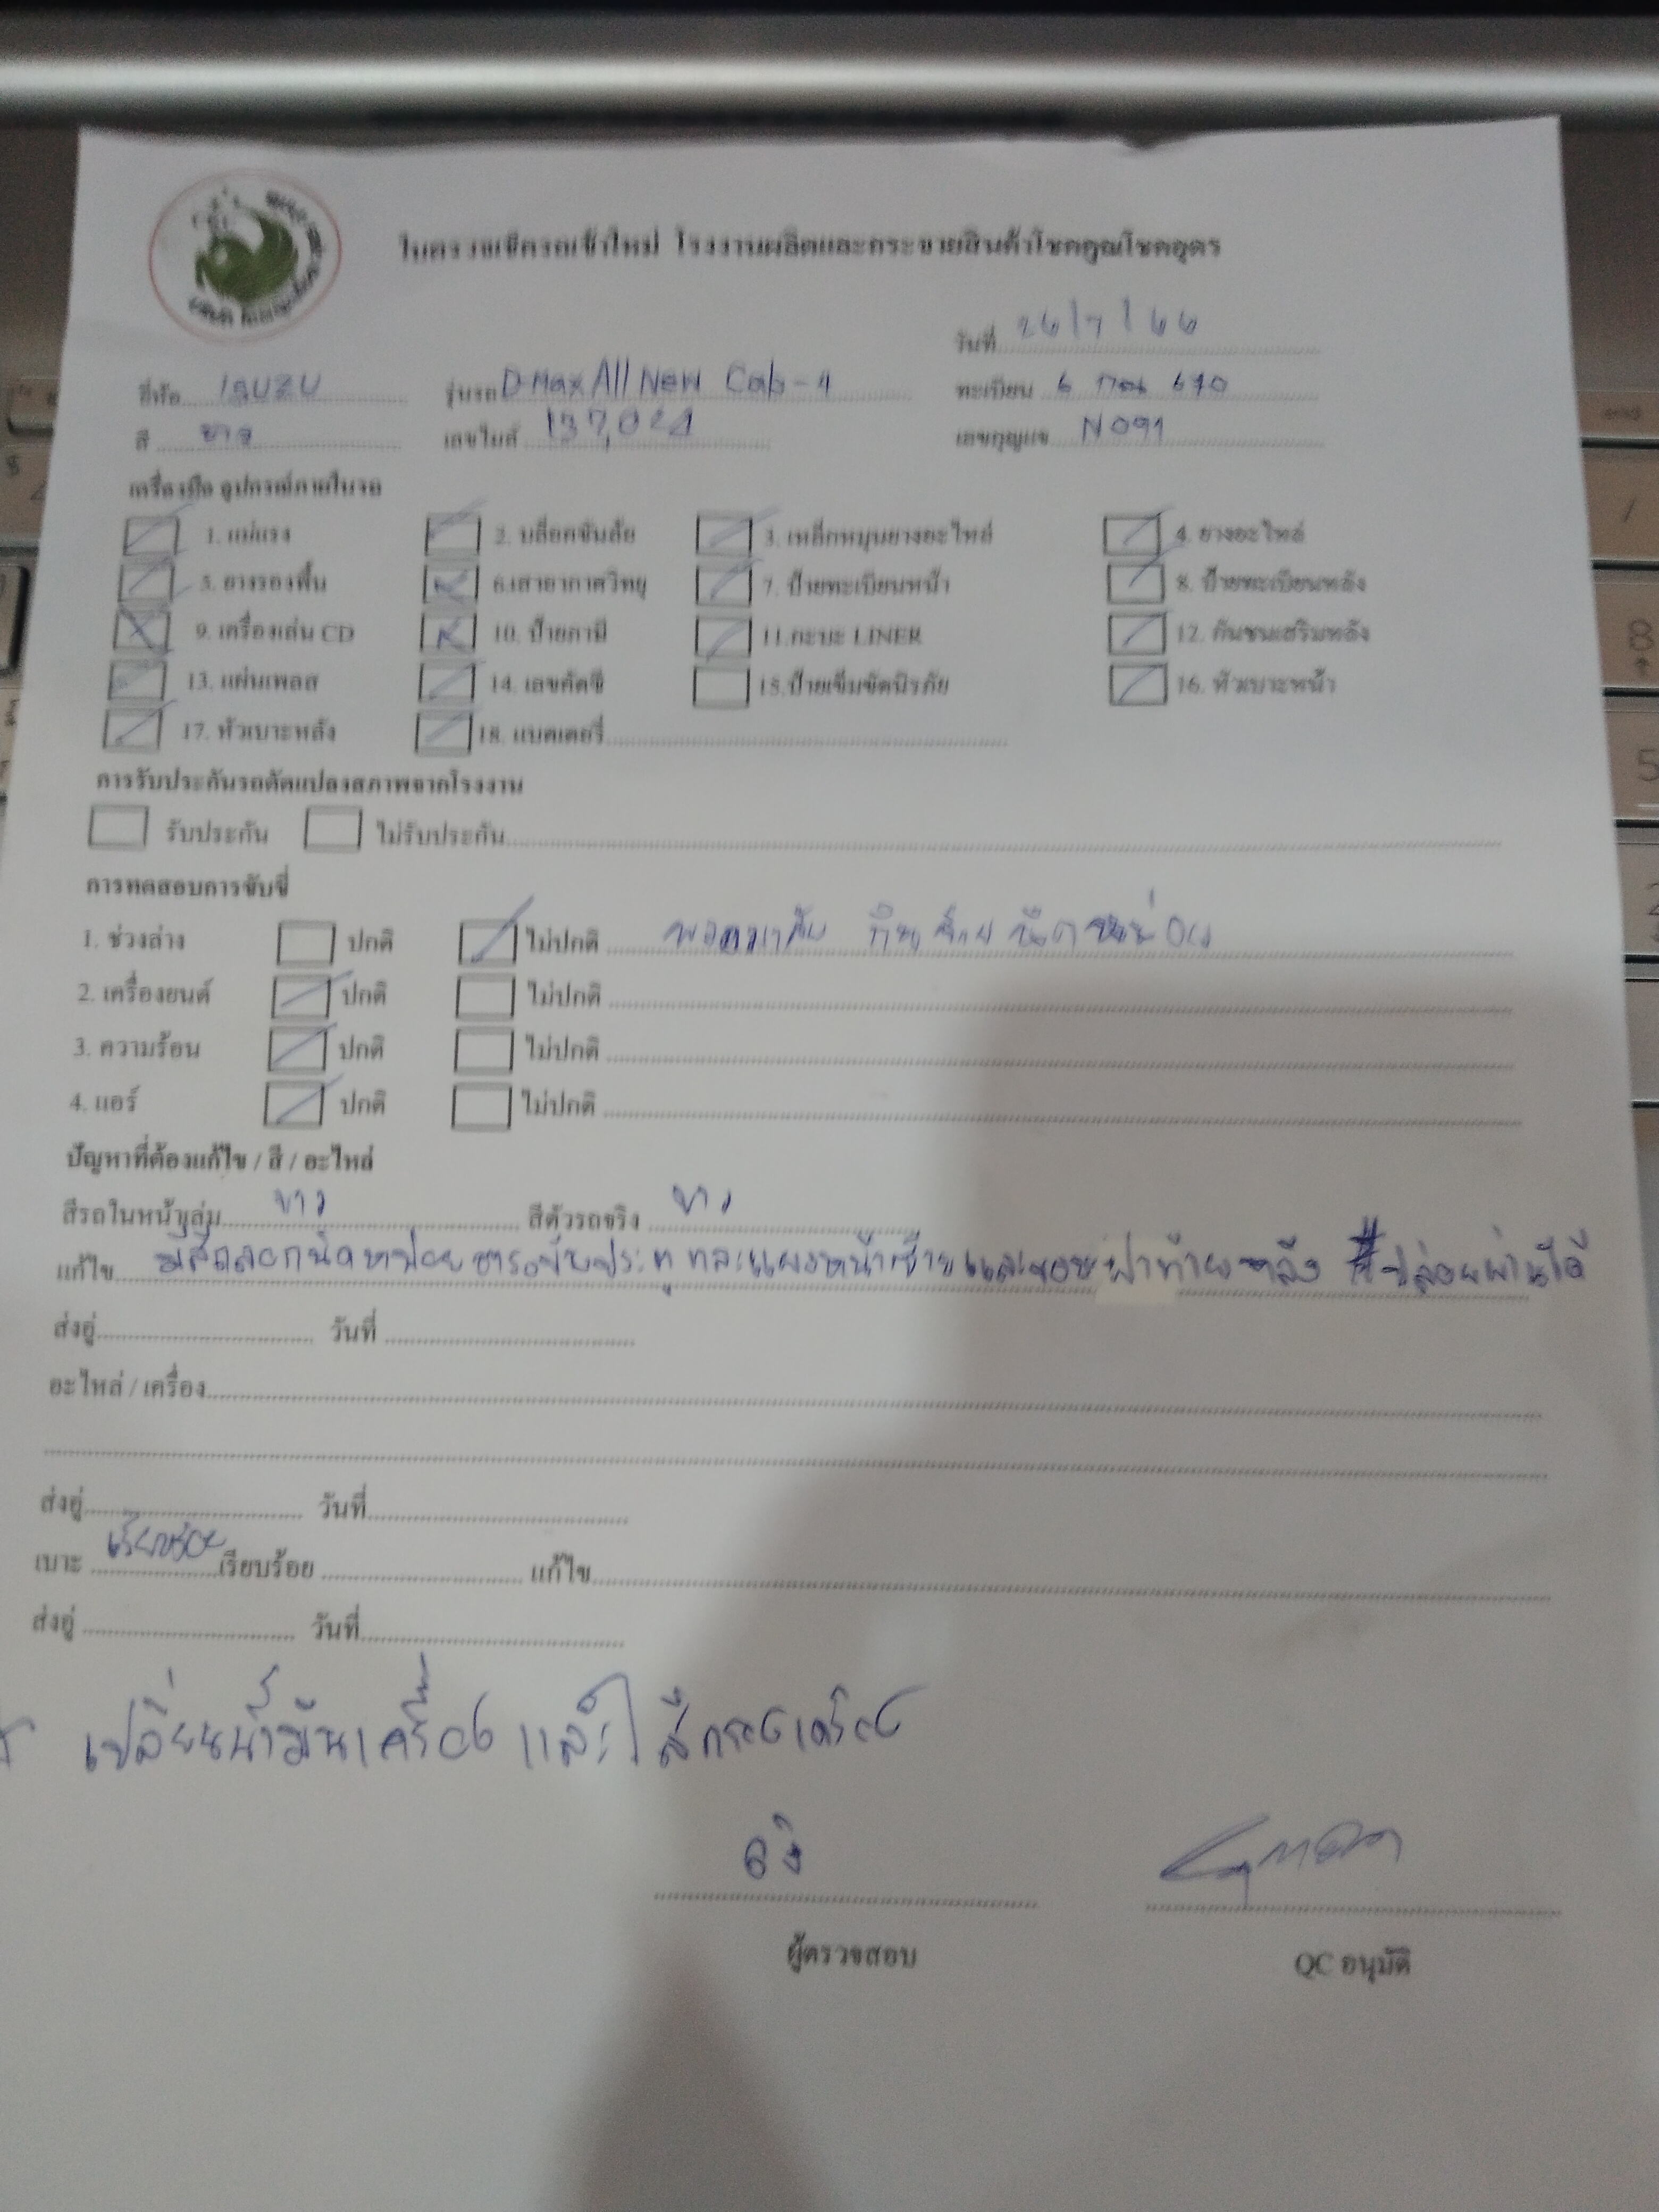 ใบตรวจเช็ครถเข้าใหม่ โรงงานผลิตและกระจายสินค้าโชคคูณโชคอุดร
วันที่ 26/7/66
ยี่ห้อ ISUZU รุ่นรถ D-Max All New Cab-4 ทะเบียน 6 670
สี ขาว เลขไมล์ 137,024 เลขกุญแจ N091
เครื่องมือ อุปกรณ์ภายในรถ
1. แม่แรง 2. บล็อคขันล้อ 3. เหล็กหมุนยางอะไหล่ 4. ยางอะไหล่
5. ยางรองพื้น 6.เสาอากาศวิทยุ 7. ป้ายทะเบียนหน้า 8. ป้ายทะเบียนหลัง
9. เครื่องเล่น CD 10. ป้ายภาษี 11.กะบะ LINER 12. กันชนเสริมหลัง
13. แผ่นเพลส 14. เลขคัสซี 15.ป้ายเข็มขัดนิรภัย 16. หัวเบาะหน้า
17. หัวเบาะหลัง 18. แบตเตอรี่
การรับประกันรถดัดแปลงสภาพจากโรงงาน
รับประกัน ไม่รับประกัน
การทดสอบการขับขี่
1. ช่วงล่าง ปกติ ไม่ปกติ พวงมาลัย กินซ้าย นิดหน่อย
2. เครื่องยนต์ ปกติ ไม่ปกติ
3. ความร้อน ปกติ ไม่ปกติ
4. แอร์ ปกติ ไม่ปกติ
ปัญหาที่ต้องแก้ไข / สี / อะไหล่
สีรถในหน้าเล่ม ขาว สีตัวรถจริง ขาว
แก้ไข มีสีถลอกนิดหน่อย ประตู หน้าซ้ายและขอบฝาท้ายหลัง ปล่อยผ่านได้
ส่งอู่ วันที่
อะไหล่ / เครื่อง
ส่งอู่ วันที่
เบาะ เรียบร้อย เรียบร้อย แก้ไข
ส่งอู่ วันที่
เปลี่ยนน้ำมันเครื่อง และไส้กรองเครื่อง
ผู้ตรวจสอบ QC อนุมัติ